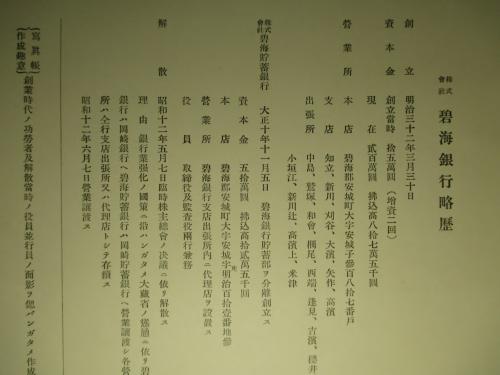 株式會社 碧海銀行略歴
創立 明治三十二年三月三十日
資本金 創立當時 拾五萬圓 (増資二回)
現在 貳百萬圓 拂込高八拾七萬五千圓
營業所 本店 碧海郡安城町大字安城子參百八拾七番戸
支店 知立、新川、刈谷、大濱、矢作、高濱
出張所 中島、鷲塚、和會、棚尾、西端、逢見、吉濱、櫻井
小垣江、新川辻、高濱上、米津
株式會社 碧海貯蓄銀行 大正十年十一月五日 碧海銀行貯蓄部ヲ分離創立ス
資本金 五拾萬圓 拂込高拾貳萬五千圓
本店 碧海郡安城町大字安城字明治百拾壹番地參
營業所 碧海銀行支店出張所內ニ代理店ヲ設置ス
役員 取締役及監査役兩行兼務
解散 昭和十二年五月七日臨時株主總會ノ決議ニ依リ解散ス
理由 銀行業强化ノ國策ニ沿ハンガタメ大藏省ノ慫慂ニ依リ碧
銀行ハ岡崎銀行ヘ碧海貯蓄銀行ハ岡崎貯蓄銀行ヘ營業讓渡シ各營
所ハ全行支店出張所又ハ代理店トシテ存續ス
昭和十二年六月七日營業讓渡ス
寫眞帳作成趣意 創業時代ノ功勞者及解散當時ノ役員並行員ノ面影ヲ偲バンガタメ作成